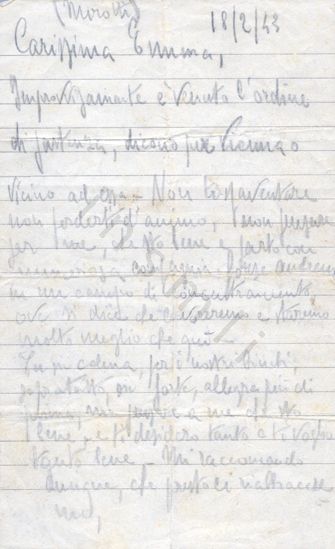 (Morotti) 18/2/43
Carissima Emma,
Improvvisamente è venuto l'ordine
di partenza, dicono per Vienna o
vicino ad essa - Non ti spaventare
non perderti d'animo, non pensare
per me, che sto bene e parto con
numerosa compagnia. Forse andremo
in un campo di concentramento
ove si dice che lavoreremo e staremo
molto meglio che qui -
Tu mia cara, per i nostri bimbi,
sopratutto, sii forte, allegra più di
prima, ma pensa a me che sto
bene, e ti desidero tanto e ti voglio
tanto bene. Mi raccomando
dunque, che presto ci riabbracce
remo,